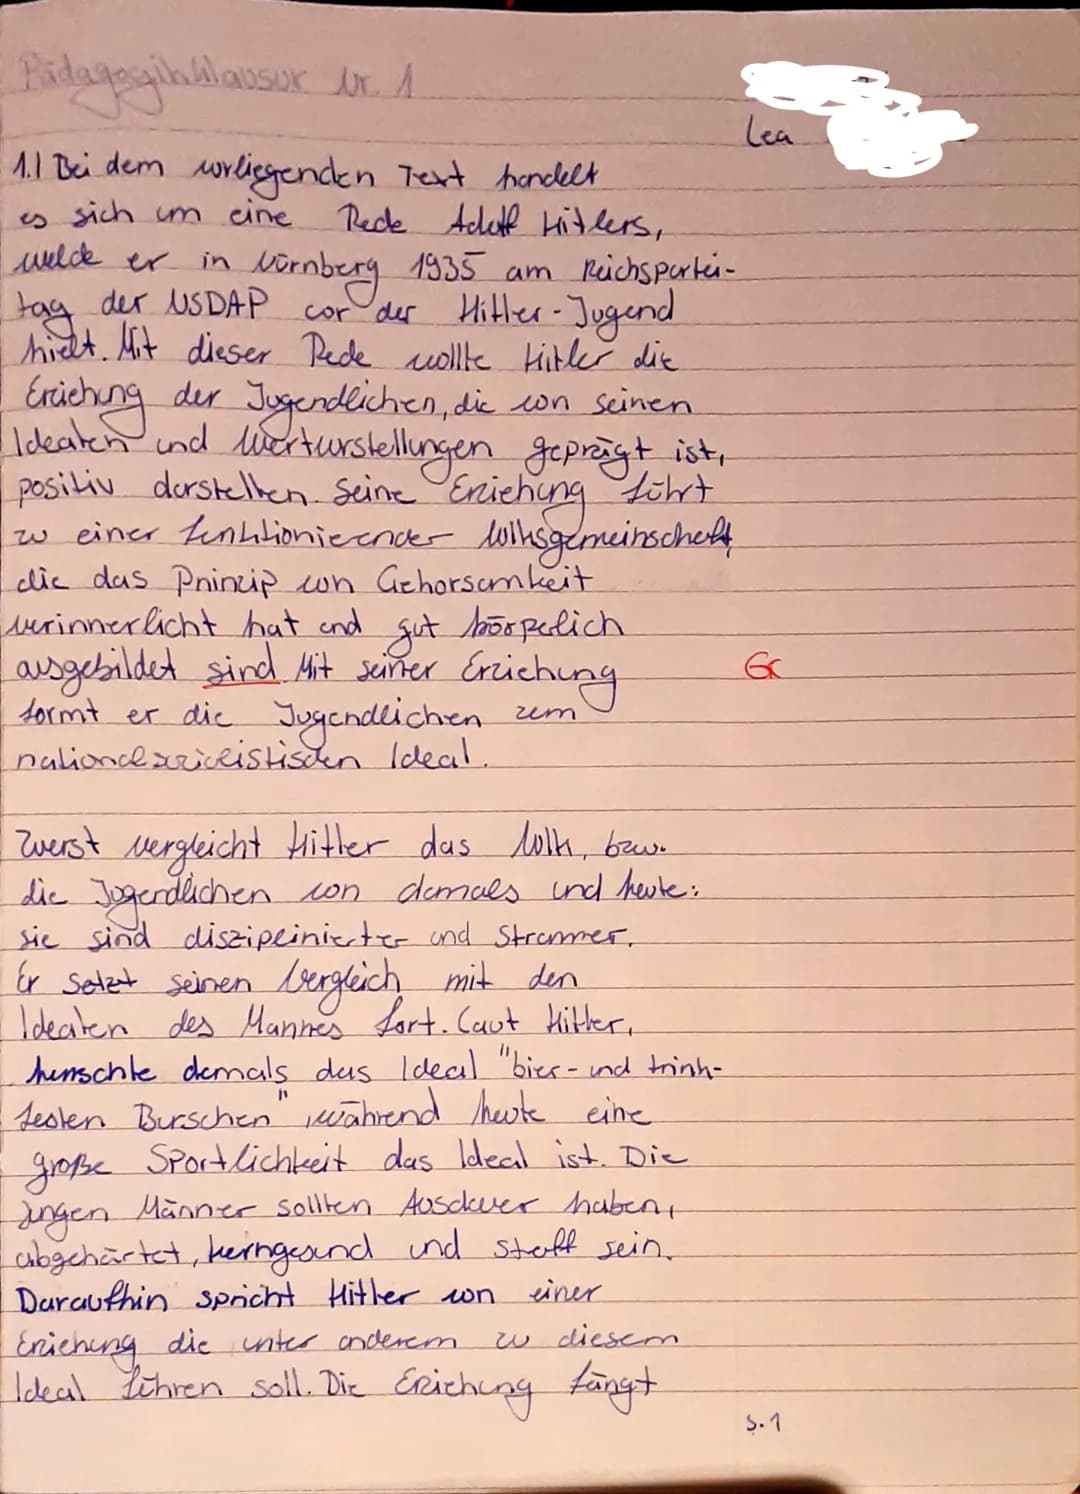 Pädagogikklausur Nr. 1
Lea
1.) Bei dem vorliegenden Text handelt
es sich um eine Rede Adolf Hitlers,
welche er in Nürnberg 1935 am Reichspartei-
tag der NSDAP vor der Hitler-Jugend
hielt. Mit dieser Rede wollte Hitler die
Erziehung der Jugendlichen, die von seinen
Idealen und Wertvorstellungen geprägt ist,
positiv darstellen. Seine Erziehung führt
zu einer funktionierender Volksgemeinschaft,
die das Prinzip von Gehorsamkeit
verinnerlicht hat und gut körperlich
ausgebildet sind. Mit seiner Erziehung
Gr
formt er die Jugendlichen zum
nationalsozialistischen Ideal.
Zuerst vergleicht Hitler das Volk, bzw.
die Jugendlichen von damals und heute:
sie sind disziplinierter und strammer.
Er setzt seinen Vergleich mit den
Idealen des Mannes fort. Laut Hitler,
herrschte damals das Ideal "bier- und trink-
festen Burschen", während heute eine
große Sportlichkeit das Ideal ist. Die
jungen Männer sollten Ausdauer haben,
abgehärtet, kerngesund und straff sein.
Daraufhin spricht Hitler von einer
Erziehung die unter anderem zu diesem
Ideal führen soll. Die Erziehung fängt
S. 1